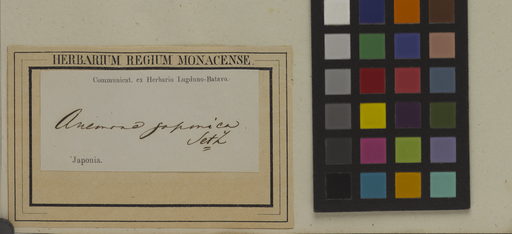 HERBARIUM REGIUM MONACENSE.
Communicat. ex Herbario Lugduno-Batavo.
Anemone japonica
Japonia.